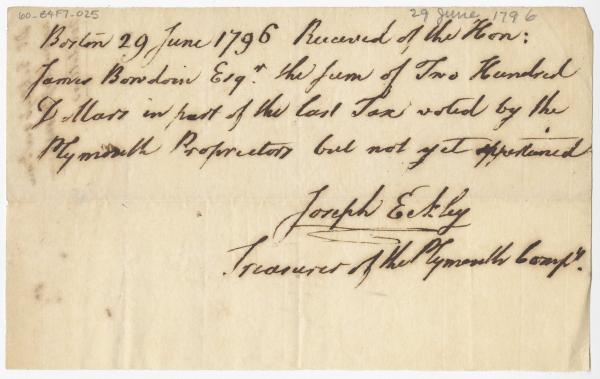 60-E4F7-025
29 June 1796
Boston 29 June 1796 Received of the Hon:
James Bowdoin Esqr. the sum of Two Hundred
Dollars in part of the last Tax voted by the
Plymouth Proprietors but not yet
Joseph Eckley
Treasurer of the Plymouth Compy.